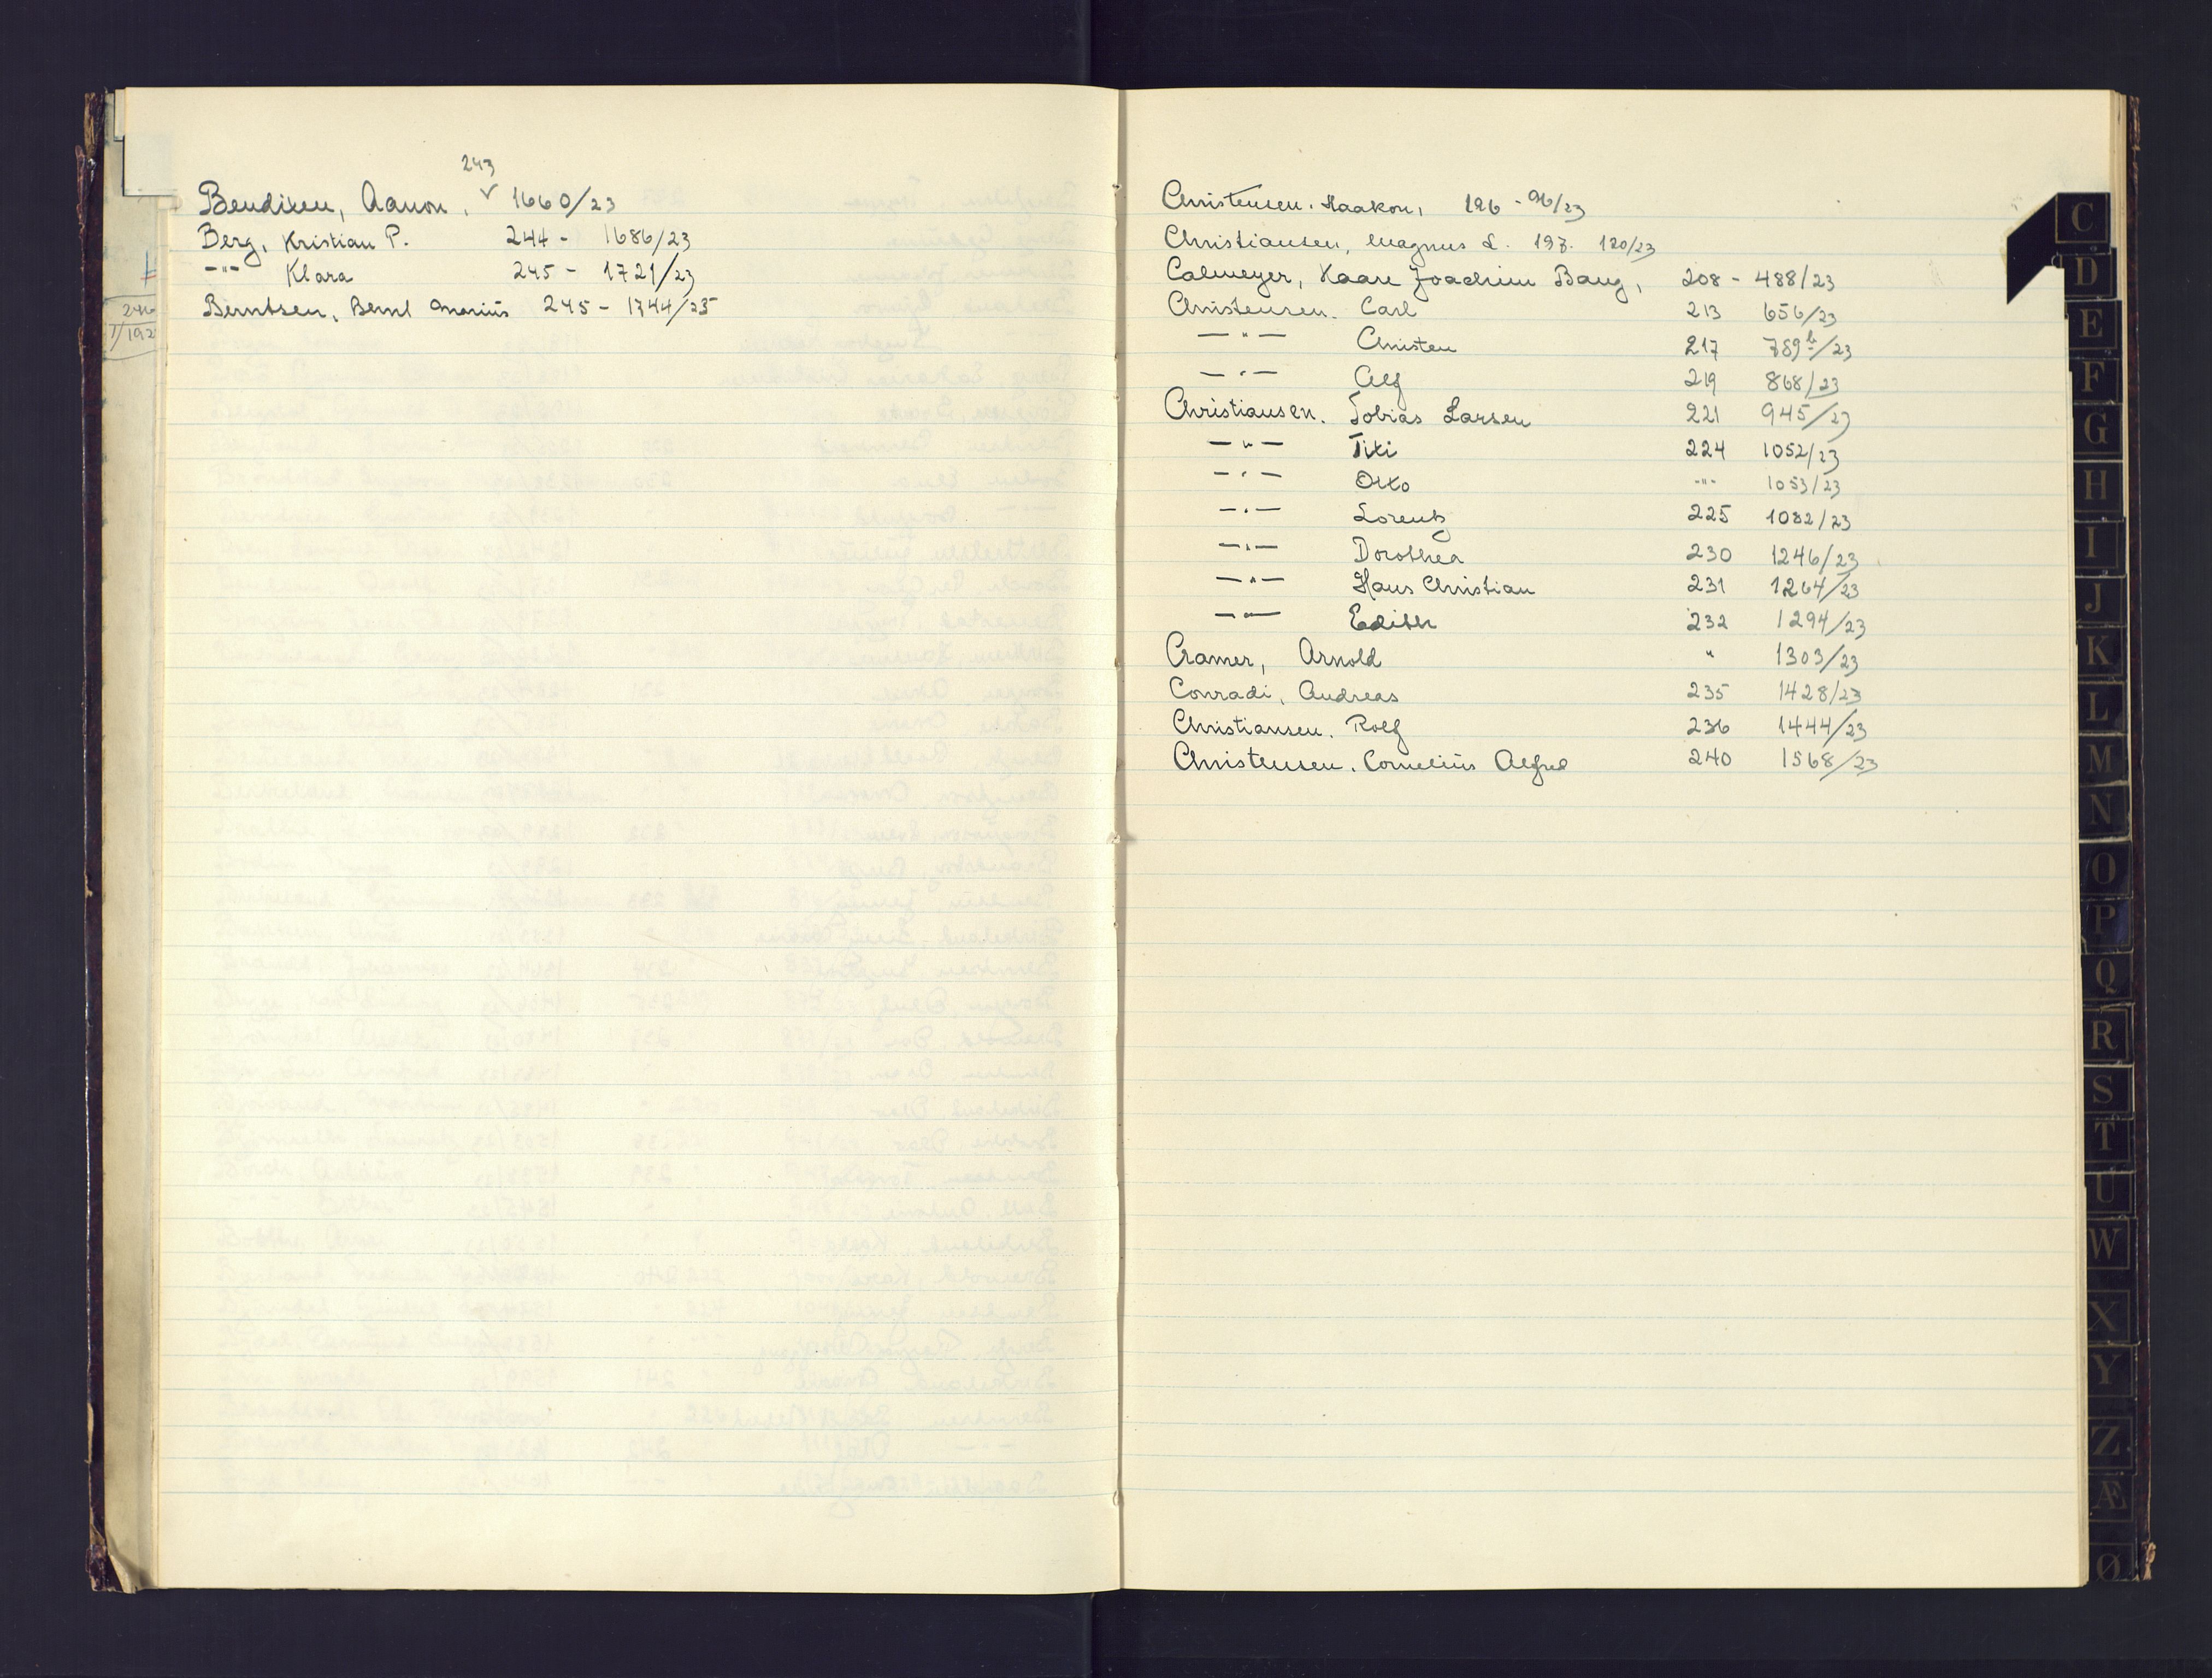 243
Bendixen, Aanon, v 1660/23
Berg, Kristian P. 244 - 1686/23
-"- Klara 245 - 1721/23
Berntsen, Bernt Marius 245 - 1744/23
Christensen, Haakon, 196 - 96/23
Christiansen, Magnus L. 197. 120/23
Calmeyer, Kaare Joachim Bang, 208 - 488/23
Christensen. Carl 213 656/23
—"— Christen 217 789b/23
—"— Alf 219 868/23
Christiansen. Tobias Larsen 221 945/23
—"— Titi 224 1052/23
—"— Otto -"- 1053/23
—"— Lorentz 225 1082/23
—"— Dorothea 230 1246/23
—"— Hans Christian 231 1264/23
—"— Edith 232 1294/23
Cramer, Arnold " 1303/23
Conradi, Andreas 235 1428/23
Christiansen. Rolf 236 1444/23
Christensen. Cornelius Alfred 240 1568/23
C
D
E
F
G
H
I
J
K
L
M
N
O
P
Q
R
S
T
U
W
X
Y
Z
Æ
Ø